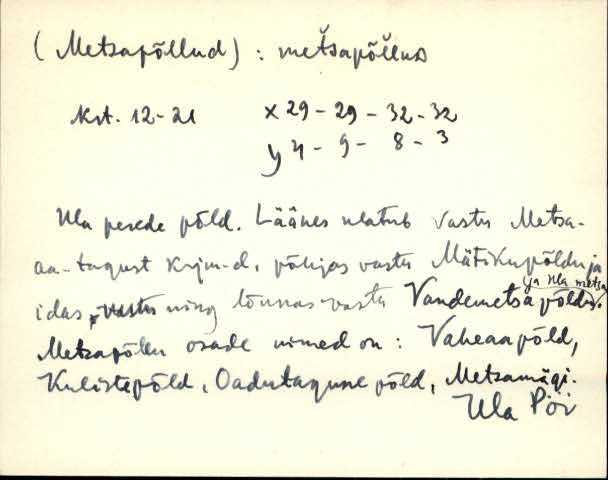 (Metsapõllud) : metsapõllud
Krt. 12-21 x 29 - 29 - 32 - 32
y 4 - 9 - 8 - 3
Ula perede põld. Läänes ulatub vastu Metsa-
aa-tagust krjm-d, põhjas vastu Mätikupõldu ja
idas, vastu ning lõunas vastu Vandemetsa põldu.
ja Ula metsa
Metsapõllu osade nimed on : Vaheaapõld,
Kulistepõld, Oadutagune põld, Metsamägi.
Ula Pöi